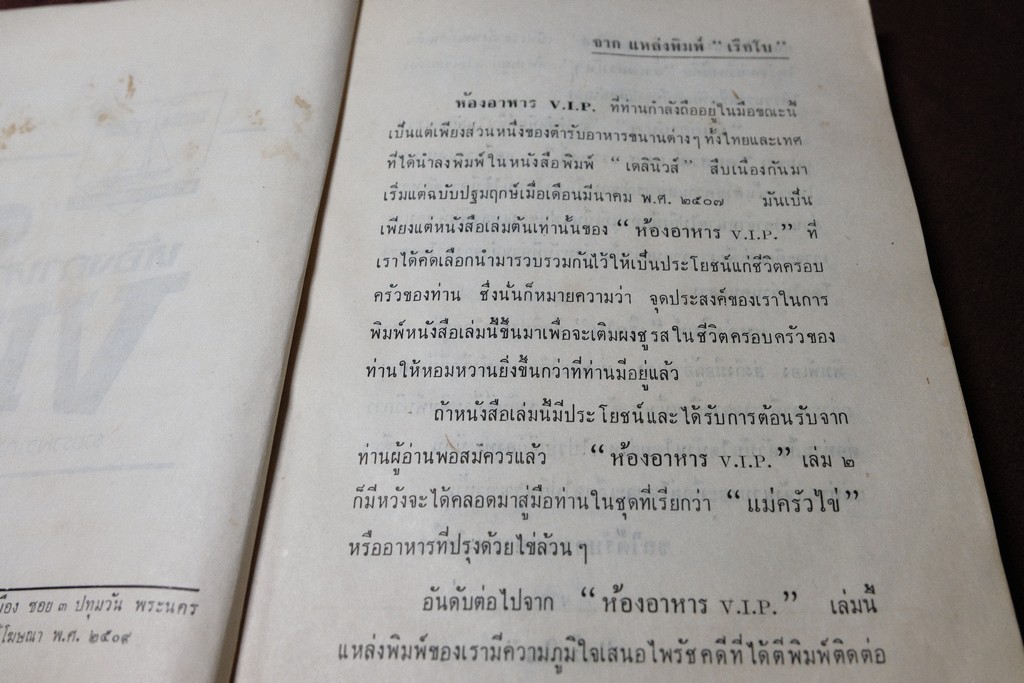 เมือง ซอย ๓ ปทุมวัน พระนคร
โฆษณา พ.ศ. ๒๕๐๙
จาก แหล่งพิมพ์ “ เรือใบ ”
ห้องอาหาร V.I.P. ที่ท่านกำลังถืออยู่ในมือขณะนี้
เป็นแต่เพียงส่วนหนึ่งของตำรับอาหารขนานต่างๆ ทั้งไทยและเทศ
ที่ได้นำลงพิมพ์ในหนังสือพิมพ์ “ เดลินิวส์ ” สืบเนื่องกันมา
เริ่มแต่ฉบับปฐมฤกษ์เมื่อเดือนมีนาคม พ.ศ. ๒๕๐๗ มันเป็น
เพียงแต่หนังสือเล่มต้นเท่านั้นของ “ ห้องอาหาร V.I.P. ” ที่
เราได้คัดเลือกนำมารวบรวมกันไว้ให้เป็นประโยชน์แก่ชีวิตครอบ
ครัวของท่าน ซึ่งนั่นก็หมายความว่า จุดประสงค์ของเราในการ
พิมพ์หนังสือเล่มนี้ขึ้นมาเพื่อจะเติมผงชูรสในชีวิตครอบครัวของ
ท่านให้หอมหวานยิ่งขึ้นกว่าที่ท่านมีอยู่แล้ว
ถ้าหนังสือเล่มนี้มีประโยชน์และได้รับการต้อนรับจาก
ท่านผู้อ่านพอสมัควรแล้ว “ ห้องอาหาร V.I.P. ” เล่ม ๒
ก็มีหวังจะได้คลอดมาสู่มือท่านในชุดที่เรียกว่า “ แม่ครัวไข่ ”
หรืออาหารที่ปรุงด้วยไข่ล้วนๆ
อันดับต่อไปจาก “ ห้องอาหาร V.I.P. ” เล่มนี้
แหล่งพิมพ์ของเรามีความภูมิใจเสนอไพรัชคดีที่ได้ตีพิมพ์ติดต่อ